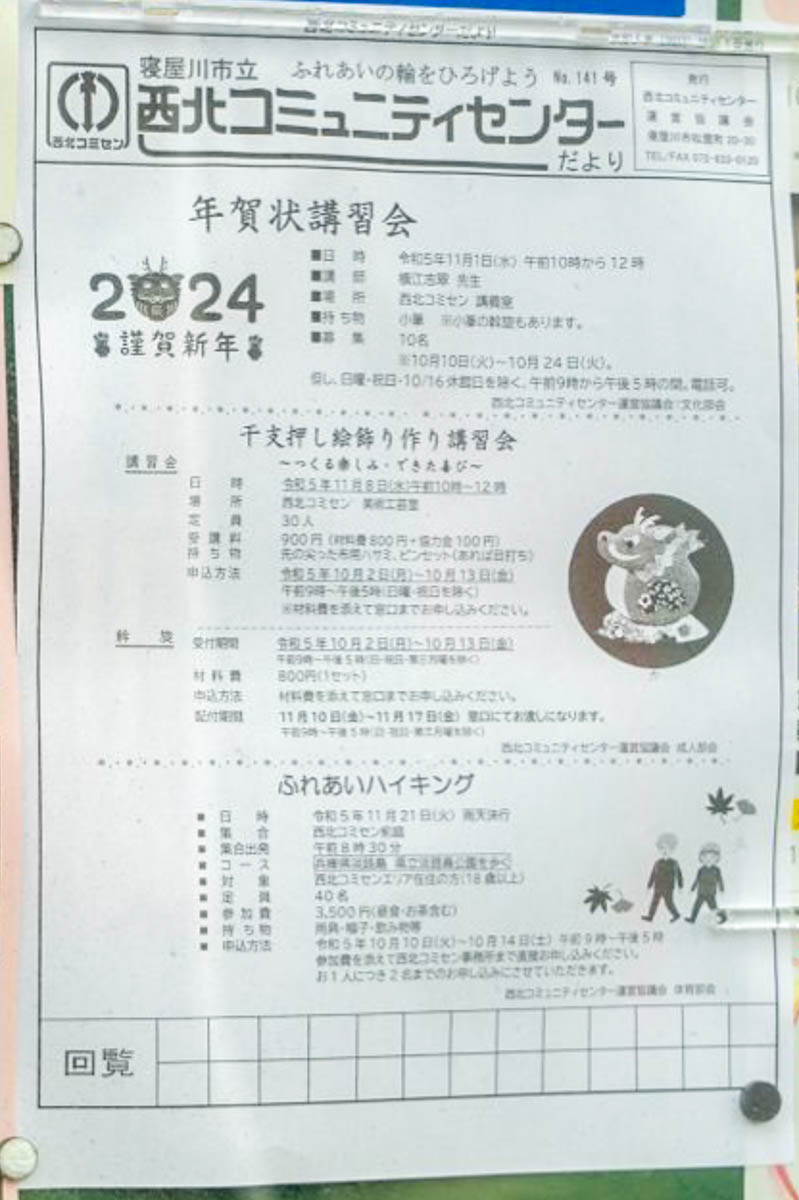 西北コミュニティセンターだより
寝屋川市立 ふれあいの輪をひろげよう No.141号
西北コミセン
西北コミュニティセンター
だより
発行
西北コミュニティセンター
運営協議会
寝屋川市松屋町20-30
TEL/FAX 072-833-0120
年賀状講習会
2024
謹賀新年
■日時 令和5年11月1日(水) 午前10時から12時
■講師 横江志翠 先生
■場所 西北コミセン 講義室
■持ち物 小筆 ※小筆の斡旋もあります。
■募集 10名
※10月10日(火)~10月24日(火)。
但し、日曜・祝日・10/16休館日を除く、午前9時から午後5時の間。電話可。
西北コミュニティセンター運営協議会 文化部会
干支押し絵飾り作り講習会
~つくる楽しみ・できた喜び~
講習会
日時 令和5年11月8日(水)午前10時~12時
場所 西北コミセン 美術工芸室
定員 30人
受講料 900円(材料費800円+協力金100円)
持ち物 先の尖った布用ハサミ、ピンセット(あれば目打ち)
申込方法 令和5年10月2日(月)~10月13日(金)
午前9時~午後5時(日曜・祝日を除く)
※材料費を添えて窓口までお申し込みください。
斡旋 受付期間 令和5年10月2日(月)~10月13日(金)
午前9時~午後5時(日・祝日・第三月曜を除く)
材料費 800円(1セット)
申込方法 材料費を添えて窓口までお申し込みください。
配付期間 11月10日(金)~11月17日(金) 窓口にてお渡しになります。
午前9時~午後5時(日・祝日・第三月曜を除く)
西北コミュニティセンター運営協議会 成人部会
ふれあいハイキング
■日時 令和5年11月21日(火) 雨天決行
■集合 西北コミセン前庭
■集合出発 午前8時30分
■コース 兵庫県淡路島 県立淡路島公園を歩く
■対象 西北コミセンエリア在住の方(18歳以上)
■定員 40名
■参加費 3,500円(昼食・お茶含む)
■持ち物 雨具・帽子・飲み物等
■申込方法 令和5年10月10日(火)~10月14日(土) 午前9時~午後5時
参加費を添えて西北コミセン事務所まで直接お申し込みください。
お1人につき2名までのお申し込みにさせていただきます。
西北コミュニティセンター運営協議会 体育部会
回覧